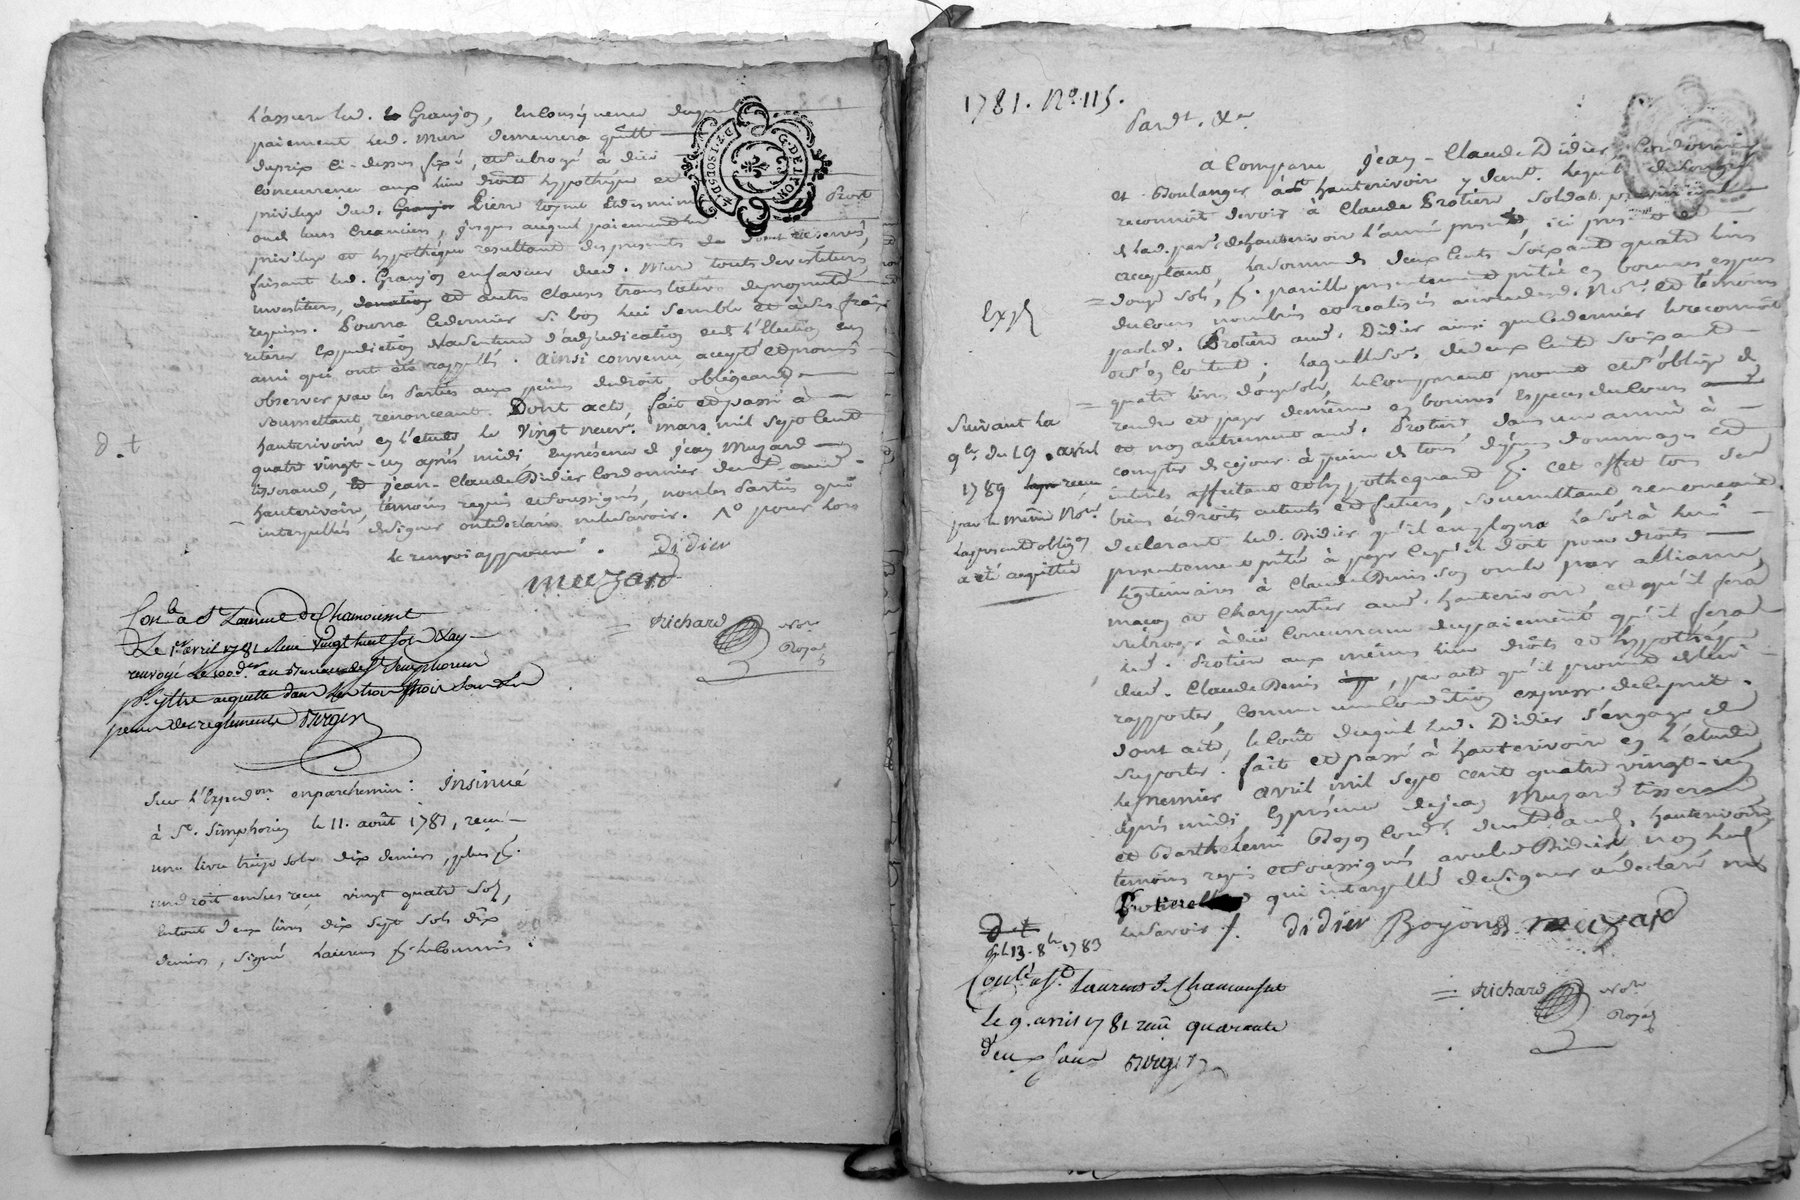 l'assieur led. Granjon, En Conséquence duquel
paiement led. Mure demeurera quitte
du prix ci-dessus fixé, et subrogé à düe
concurrence aux lieu droit hypothèque et
privilege dud. Granjon Pierre
privilege et hypothèque resultant des presentes demeurent reservés,
faisant led. Granjon en faveur dud. Mure toutes devestitures
investitures, et autres Clauses translatives de proprieté
requises. Pourra ledernier si bon lui semble et à ses frais
retirer expedition d'adjudication en l'Election
ainsi qui ont été rappellés. Ainsi convenu accepté et promis
observer par les Parties aux peines dudroit, obligeant
soumettant, renonceant. Dont acte, fait et passé à
hauterivoire en l'étude, le vingt neuf. mars mil sept Cent
quatre vingt-un après midi En présence de jean Muzard
tisserand, Et jean-Claude Didier Cordonnier
hauterivoire, témoins requis et soussignés, non les Parties qui
interpellés designer ont declaré ne le savoir. pour lors
le renvoi approuvé. Didier
muzard
Richard No.re
Royal
d. t
Con.lé a S.t Laurent de Chamousset
Le 1.er avril 1781 Reçu vingt huit sols
renvoyé le 100.e d.er au Bureau de S.t Simphorien
p.r y Etre acquitté dans les trois mois sous les
peines des reglements
Sur l'Exped.on en parchemin: Insinué
à S.t Simphorien le 11. août 1781, reçu
une livre treize sols dix deniers, plus p.r
un droit en sus reçu vingt quatre sols,
En tout deux livres dix sept sols dix
deniers, signé Laurens p.r le Commis.
1781. N.o 115.
Pard.t &.a
a Comparu jean-Claude Didier Cordonnier
et Boulanger à hauterivoire y dem.t lequel
reconnoit devoir à Claude Protiere Soldat provincial
de lad. par. de hauterivoire l'année presente, ici present et
acceptant, la somme de deux Cents soixante quatre livres
douze sols, p.r pareille presentement pretée en bonnes especes
du Cours nombrées et realisées a la vue desd. No.re et témoins
par led. Protiere aud. Didier ainsi que ce dernier le reconnoit
et s'en Contente; laquelle so.e de deux Cent soixante
quatre livres douze sols, le Comparant promet et s'oblige de
rendre et payer demême en bonnes Especes du Cours
et non autrement aud. Protiere dans une année à
compter de cejour à peine de tous dépens dommages et
intérêts affectant et hypothequant p.r cet effet tous ses
biens et droits actuels et futurs, soumettant renonceant.
declarant led. Didier qu'il employera la so.e à lui
presentement pretée à payer ce qu'il doit pour droits
légitimaires à Claude Denis son oncle par alliance
maçon et Charpentier aud. hauterivoire et qu'il fera
subroger à düe concurrence du paiement qu'il fera
led. Protiere aux mêmes lieu droits et hypotheque
dud. Claude Denis, par acte qu'il promet de lui
rapporter, comme une Condition expresse de ce prêt.
dont acte, le Coût duquel led. Didier s'engage de
supporter. fait et passé à hauterivoire en l'étude
le premier avril mil sept cent quatre vingt-un
après midi En présence de jean Muzard tisserand
et Barthelemi Boyon Cord.r dem.t aud. hauterivoire
temoins requis et soussignés avec led. Didier non led.
Protiere qui interpellé de signer a declaré ne
le savoir. Didier Boyon muzard
Richard No.re
Royal
Exp.é
Suivant la
q.ce du 19. avril
1789 reçue
par le même No.re
la presente oblig.on
a été acquittée
d t
Ex. le 13. 8.bre 1783
Con.lé a S.t Laurens de Chamousset
Le 9. avril 1781 reçu quarante
deux sous